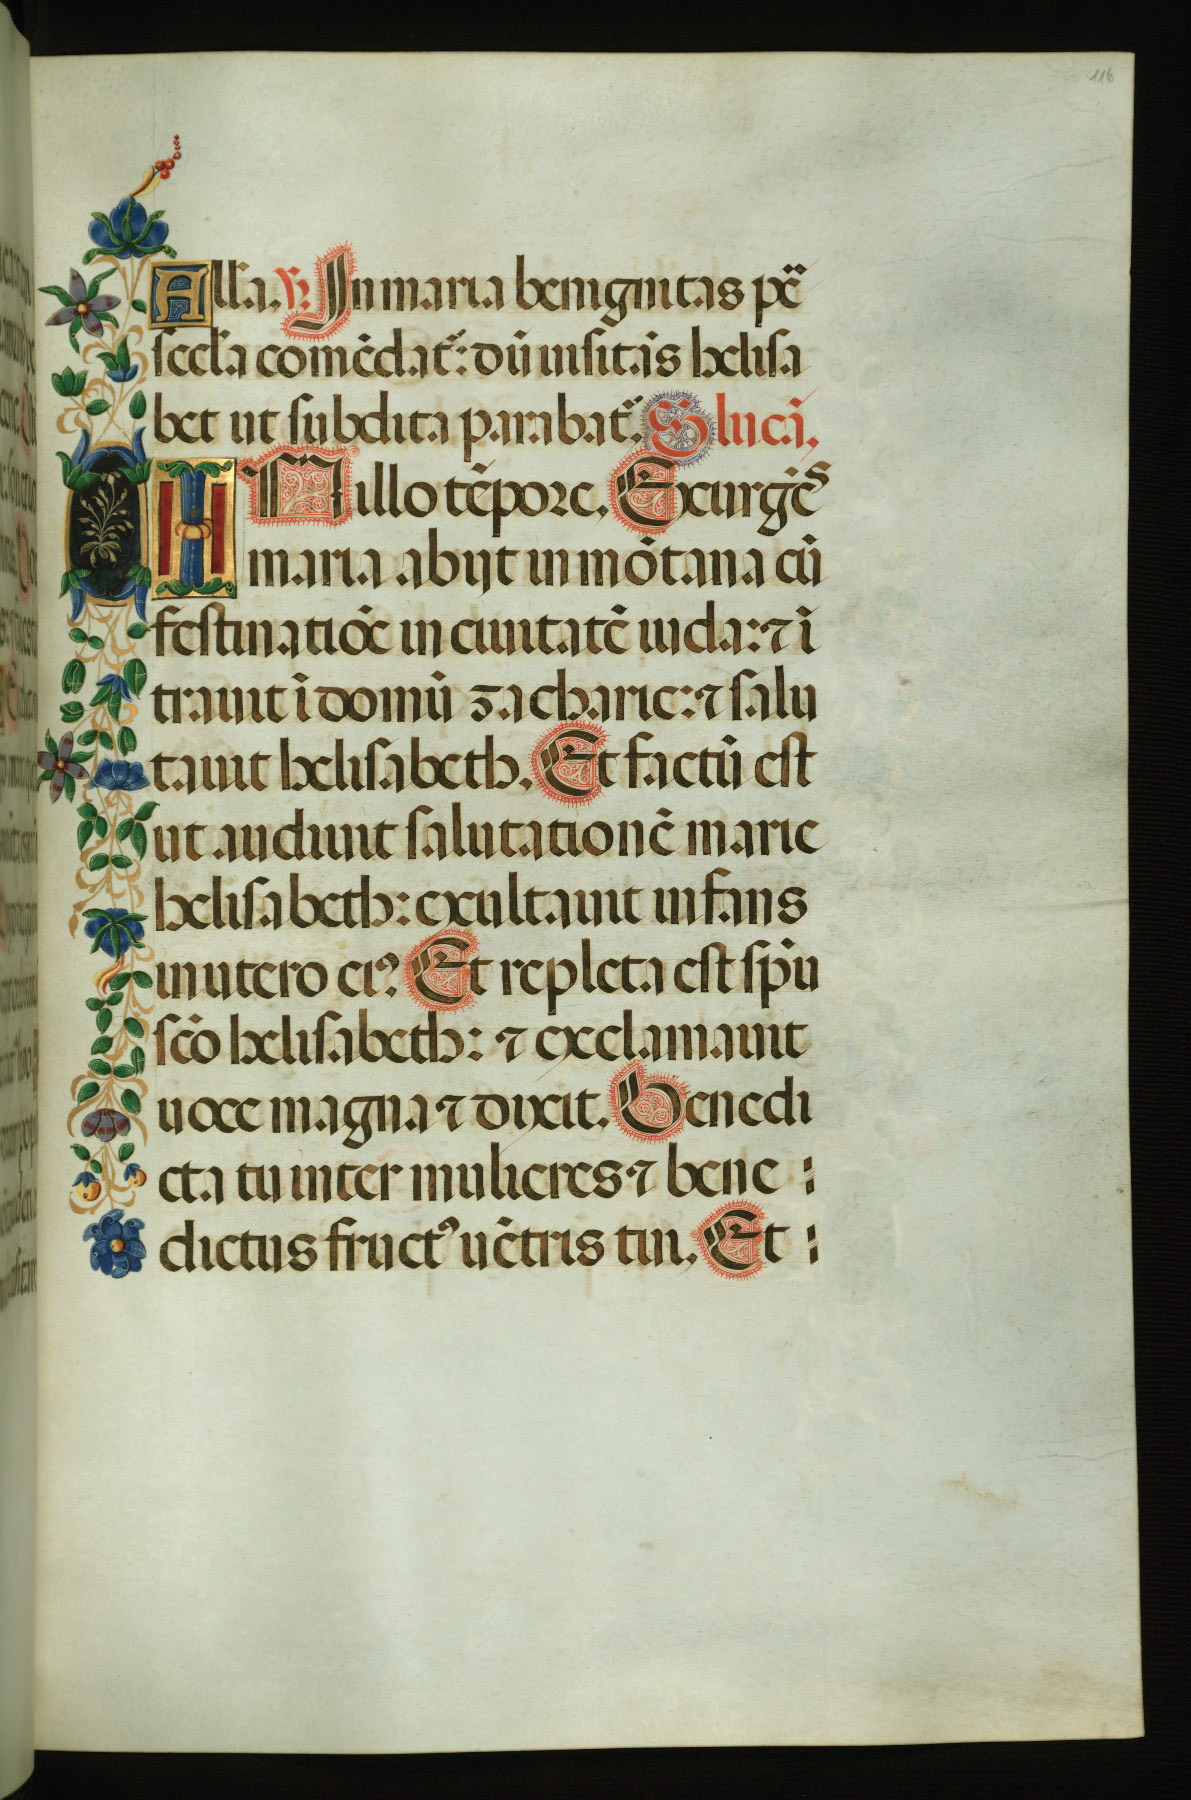 116
All'a. ℣. In maria benignitas p̱er
secl'a com̄edat̉: dū uisitās helisa
bet ut subdita parabat̉. S lucā.
IN illo tēpore. Exurgēs
maria abijt in mōtana cū
festinatiōe in ciuitatē iuda: ⁊ ī
trauit ī domū zacharie: ⁊ salu
tauit helisabeth. Et factū est
ut audiuit salutationē marie
helisabeth: exultauit infans
in utero eiꝰ. Et repleta est spū
scō helisabeth: ⁊ exclamauit
uoce magna ⁊ dixit. Benedi
cta tu inter mulieres ⁊ bene
dictus fructꝰ uētris tui. Et